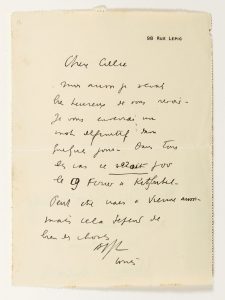 98 RUE LEPIC
Cher
aussi je serai
bien heureux de vous revoir.
Je vous enverrai un
mot définitif dans
quelques jours. Dans tous
les cas ce serait pour
le 9 Février a
Peut être a Vienne aussi
mais cela dépend de
bien des choses